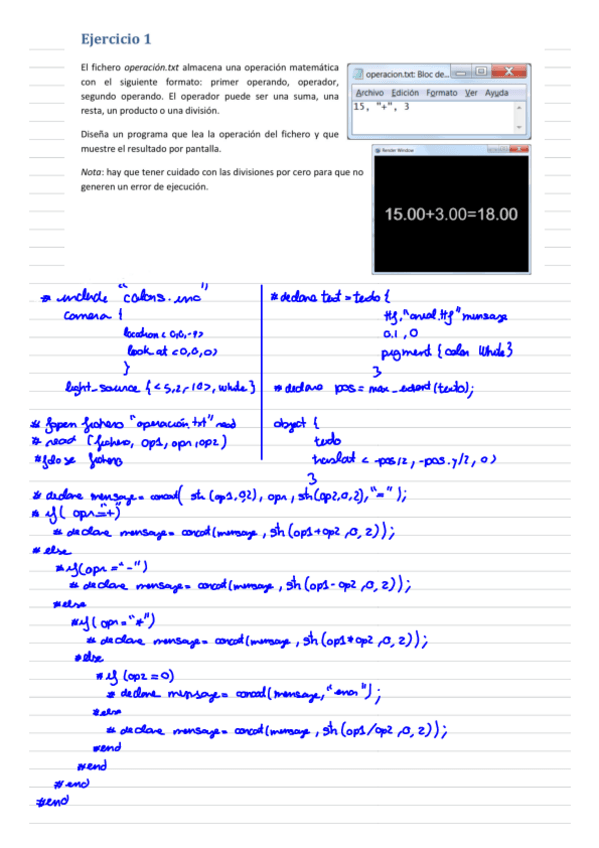 Ejercicio 1
El fichero operación.txt almacena una operación matemática
con el siguiente formato: primer operando, operador,
segundo operando. El operador puede ser una suma, una
resta, un producto o una división.
Diseña un programa que lea la operación del fichero y que
muestre el resultado por pantalla.
Nota: hay que tener cuidado con las divisiones por cero para que no
generen un error de ejecución.
operacion.txt: Bloc de...
Archivo Edición Formato Ver Ayuda
15, "+", 3
Render Window
15.00+3.00=18.00
# include "colors.inc"
camera {
location < 0,0,-9>
look_at <0,0,0>
}
light_source { < 5,2,-10>, white }
# fopen fichero "operación.txt" read
# read (fichero, op1, opr, op2)
# fclose fichero
# declare text = texto {
ttf, "arial.ttf" mensaje
0.1, 0
pigment { color White }
}
# declare pos = max_extent (texto);
object {
texto
translat < -pos/2, -pos.y/2, 0>
}
# declare mensaje = concat( str (op1,0,2), opr, str(op2,0,2), "=" );
# if ( opr="+")
# declare mensaje = concat (mensaje, str (op1+op2,0,2));
# else
# if(opr = "-")
# declare mensaje = concat (mensaje, str (op1-op2,0,2));
#else
#if ( opr="*")
# declare mensaje = concat (mensaje, str (op1*op2,0,2));
#else
# if (op2=0)
# declare mensaje = concat (mensaje, "error");
#else
# declare mensaje = concat (mensaje, str (op1/op2,0,2));
#end
#end
#end
#end